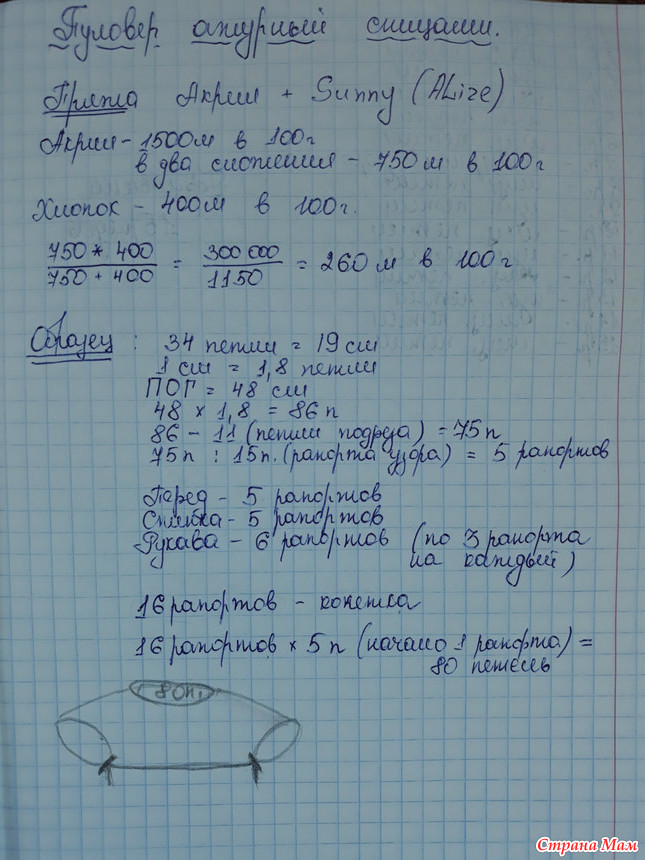 Пуловер ажурный спицами.
Пряжа Акрил + Sunny (ALize)
Акрил - 1500м в 100г
в два сложения - 750м в 100г
Хлопок - 400м в 100г.
750 * 400 / 750 + 400 = 300 000 / 1150 = 260м в 100г
Образец : 34 петли = 19 см
1 см = 1,8 петли
ПОГ = 48 см
48 × 1,8 = 86п
86 - 11 (петли подреза) = 75п
75п : 15п. (рапорта узора) = 5 рапортов
Перед - 5 рапортов
Спинка - 5 рапортов
Рукава - 6 рапортов (по 3 рапорта
на каждый)
16 рапортов - кокетка
16 рапортов × 5п (начало 1 рапорта) =
80 петель
80п.
Страна Мам